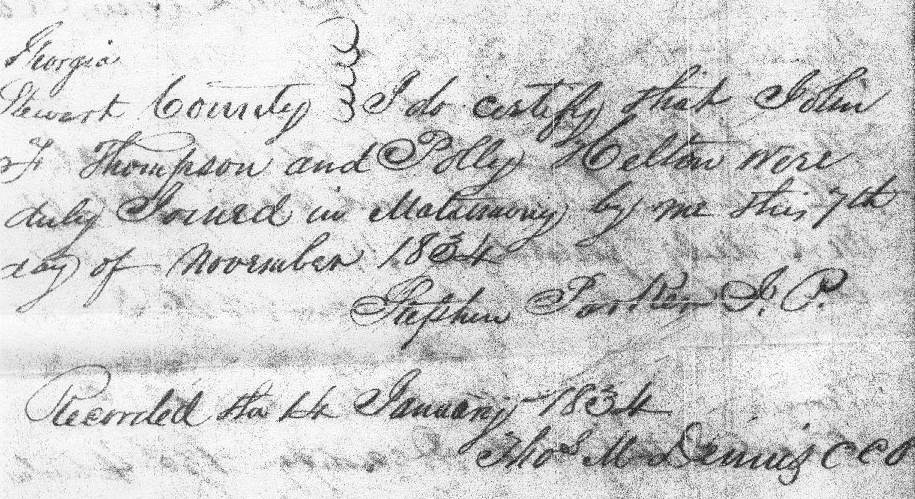 Georgia
Stewart County I do certify that John
F Thompson and Polly Helton were
duly Joined in Matrimony by me this 7th
day of November 1834
Stephen Parker J. P.
Recorded the 14 January 1834
Thos M Dennis C C O